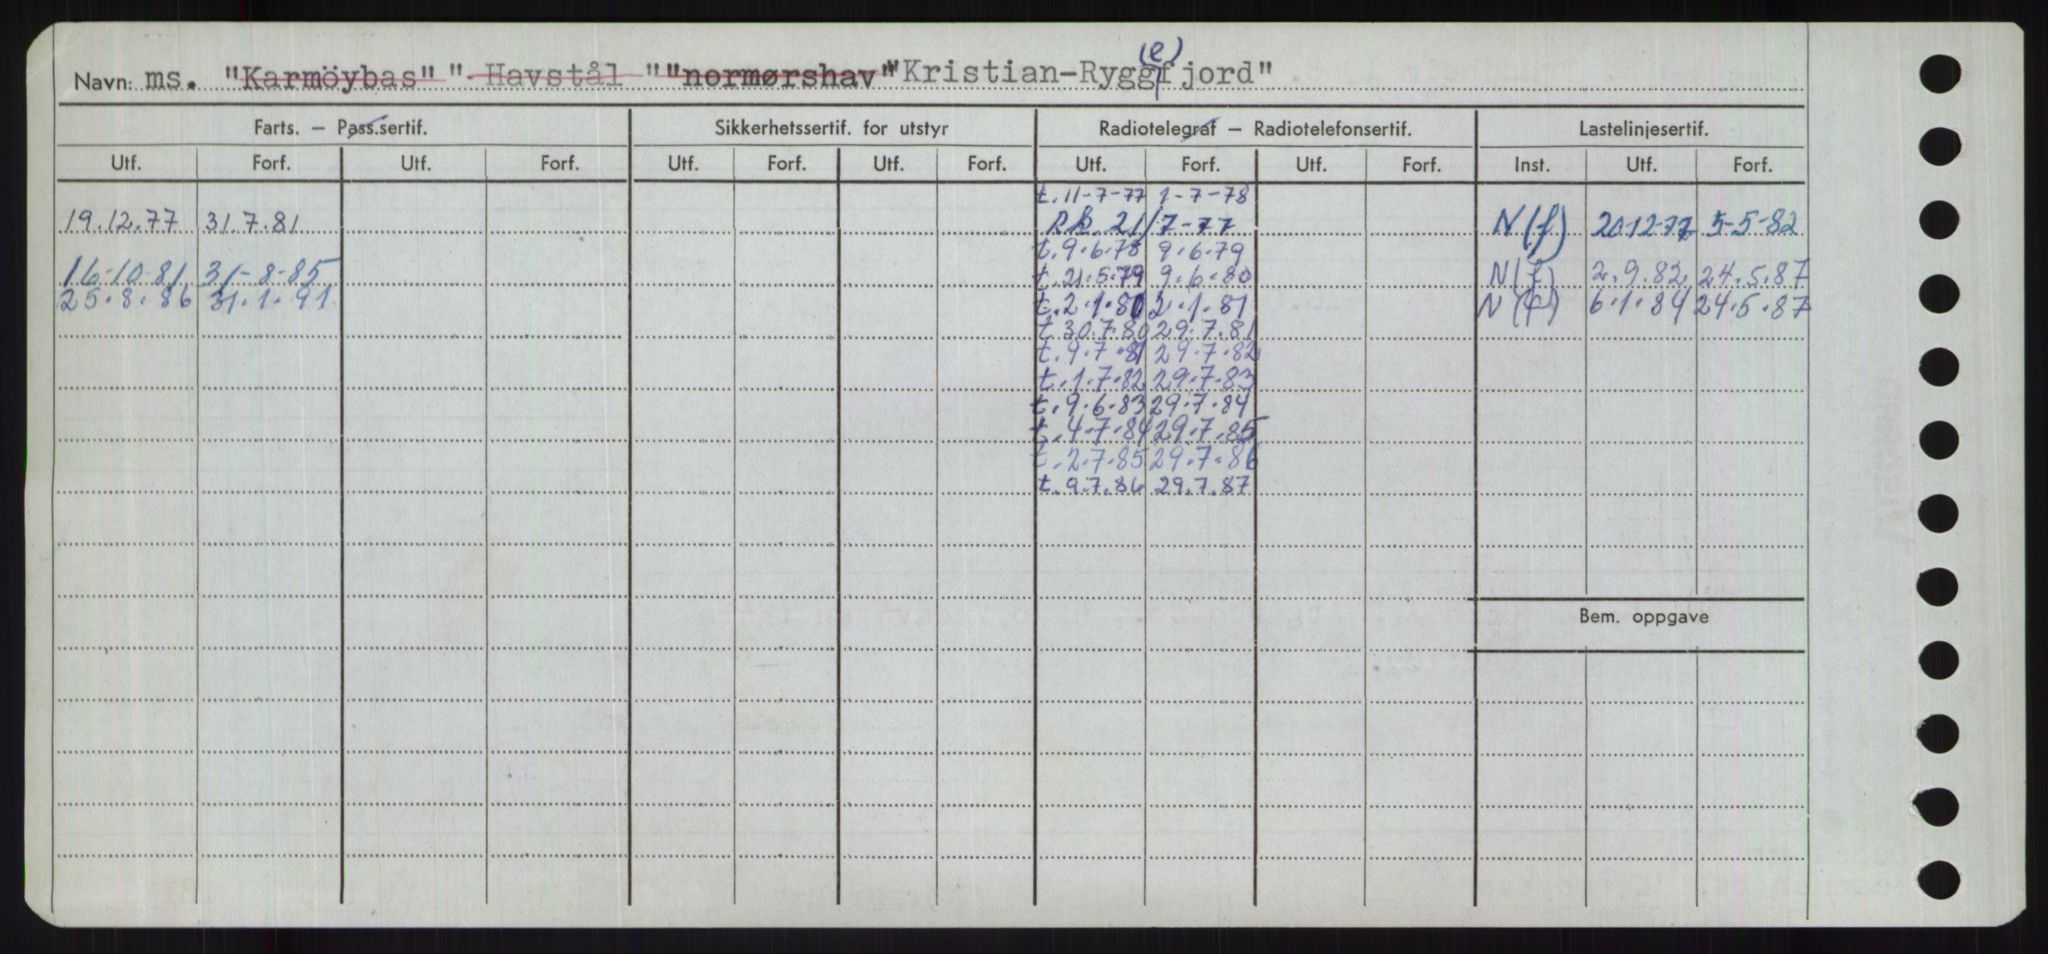 Navn: ms. "Karmöybas" " Havstål " "normørshav" "Kristian-Rygg(e)fjord"
Farts. – Pass.sertif. Sikkerhetssertif. for utstyr Radiotelegraf – Radiotelefonsertif. Lastelinjesertif.
Utf. Forf. Utf. Forf. Utf. Forf. Utf. Forf. Utf. Forf. Utf. Forf. Inst. Utf. Forf.
t. 11-7-77 1-7-78
19.12.77 31.7.81 21/7-77 N(f) 20-12-77 5-5-82
t. 9.6.78 9.6.79
16-10-81 31-8-85 t. 21.5.79 9.6.80 N(f) 2.9.82 24.5.87
25.8.86 31.1.91 t. 2.1.80 2.1.81 N(f) 6.1.84 24.5.87
t 30.7.80 29.7.81
t. 9.7.81 29.7.82
t. 1.7.82 29.7.83
t. 9.6.83 29.7.84
t. 4.7.84 29.7.85
t. 2.7.85 29.7.86
t. 9.7.86 29.7.87
Bem. oppgave